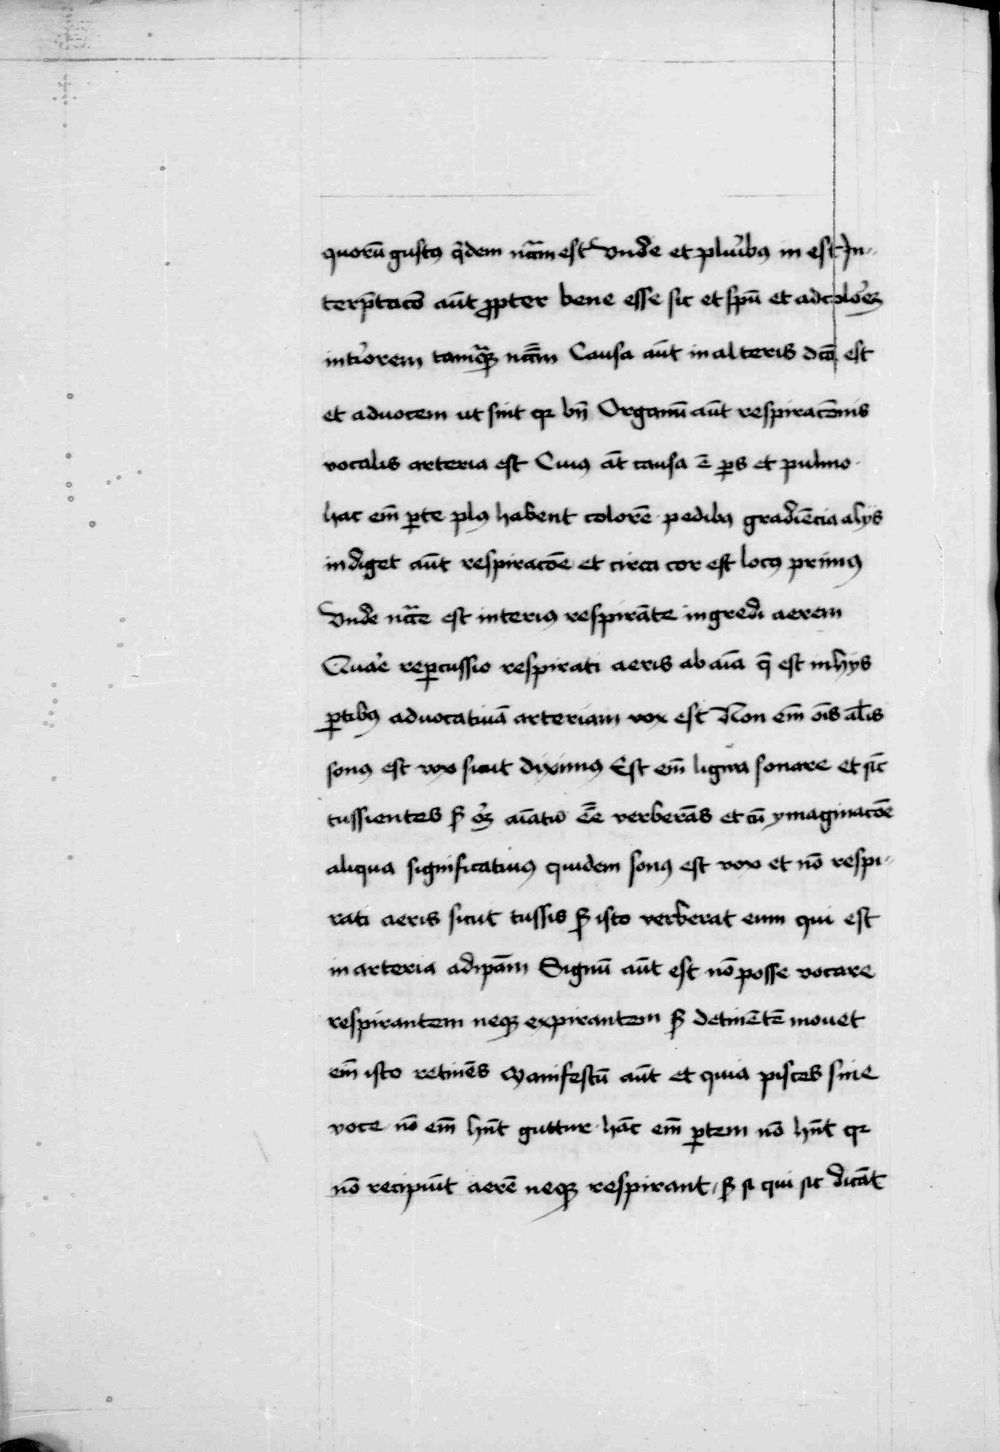 quorū gustus q̄dem nc̄am est Vnde et plurībus in est In-
terp̄tacō aūt propter bene esse sic et spū et ad colorē
intīorem tamq̄ nc̄am Causa aūt in alteris dc̄a est
et ad uocem ut sint qr bn̄ Organū aūt respiracōnis
vocalis arteria est Cuius āt causa ē ps et pulmo
hac em̄ pte plus habent colorē pedibus gradīencia alijs
indiget aūt respiracōe et circa cor est locus primus
Vnde nc̄ē est interius respirāte ingredi aerem
Quarē repercussio respirati aeris ab aīa q̄ est in hijs
ptibus ad uocatiuā arteriam vox est Non em̄ oīs al̄is
sonus est vox sicut diximus Est em̄ ligwa sonare et sic̄
tussientes s; oȝ aīatū eē̄ verberās et cū ymaginacōe
aliqua significatiuus quidem sonus est vox et nō respi-
rati aeris sicut tussis s; isto verberat eum qui est
in arteria ad ipām Signū aūt est nō posse vocare
respirantem neqȝ expirantem s; detinētē mouet
em̄ isto retinēs Manifestū aūt et quia pisces sine
voce nō em̄ hn̄t guttur hāc em̄ ptem nō hn̄t qr
nō recipiūt aerē neqȝ respirant s; si qui sic dicāt